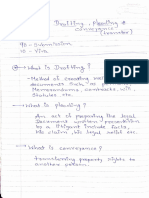 Drafting, Pleading &
conveyance
(chamber)
90 - Submission
10 - Viva
What is Drafting?
- Method of creating
documents like
Memorandums, contracts, wills,
Statutes, etc.
What is pleading?
An act of preparing the legal
Document
by a litigant include facts,
His claim, his legal relief etc.
What is conveyance?
Transferring property rights to
another person.